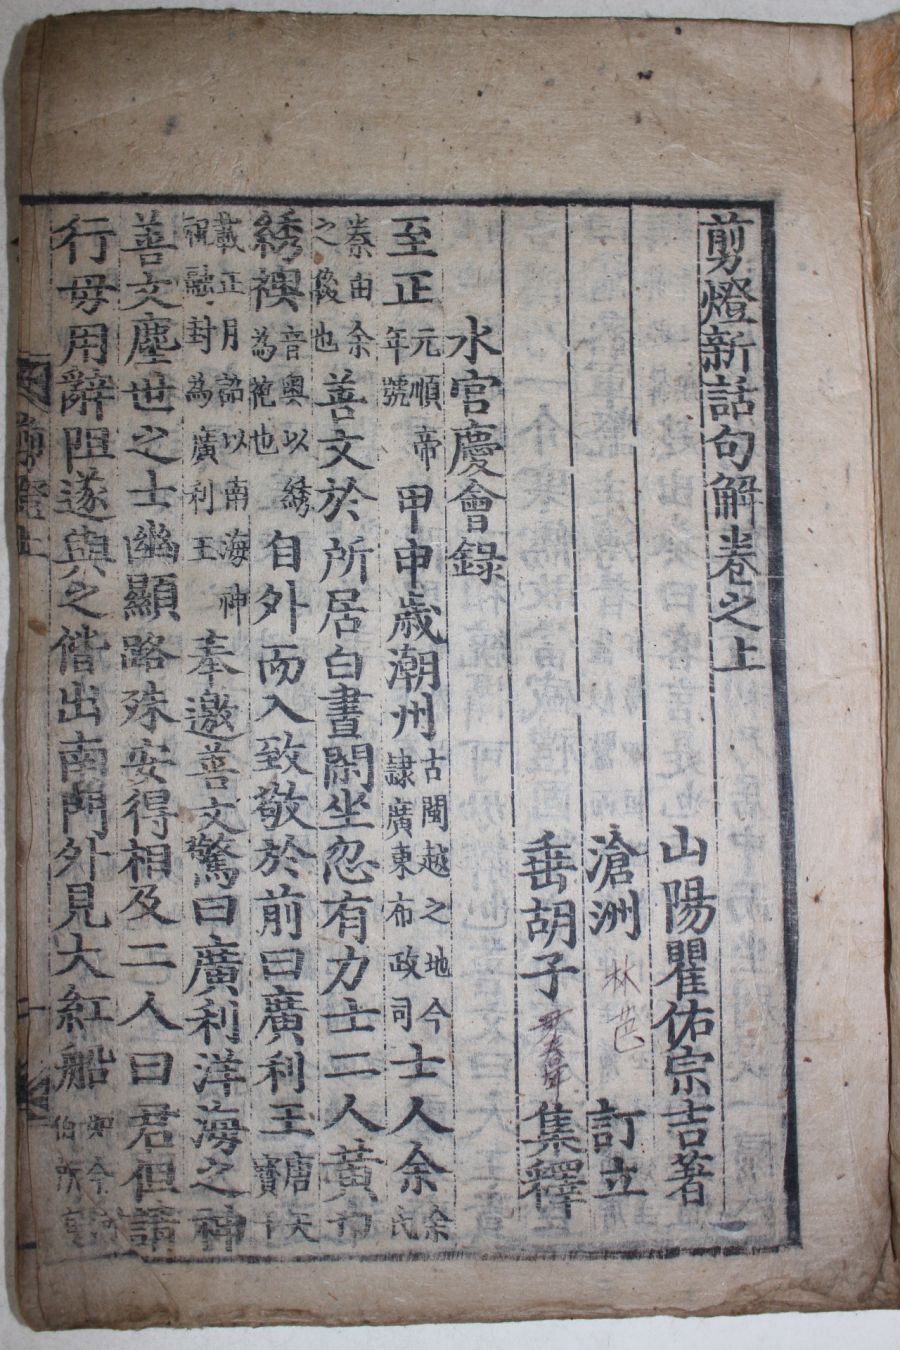 剪燈新話句解卷之上
山陽瞿佑宗吉著
滄洲 林芑 訂立
垂胡子 集釋
水宮慶會錄
至正元順帝年號甲申歲潮州古閩越之地今隸廣東布政司士人余余氏
秦由余之後也善文於所居白晝閑坐忽有力士二人黃巾
綉襖音奧以綉為袍也自外而入致敬於前曰廣利王唐天寶十
載正月詔以南海神祝融封為廣利王奉邀善文驚曰廣利洋海之神
善文塵世之士幽顯路殊安得相及二人曰君但請
行毋用辭阻遂與之偕出南門外見大紅船